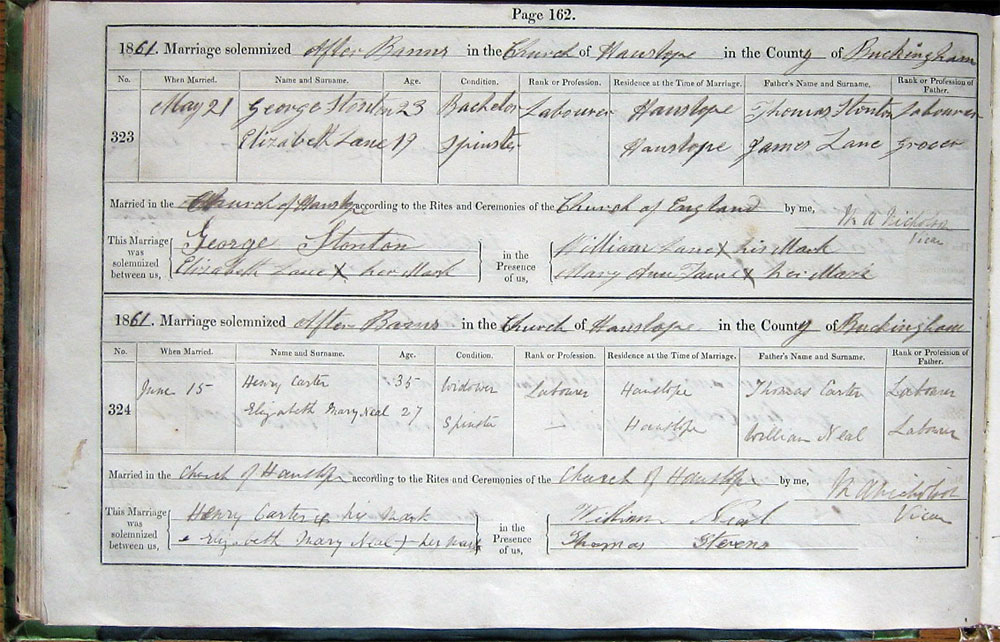 Page 162.
1861. Marriage solemnized After Banns in the Church of Hanslope in the County of Buckingham
No. When Married. Name and Surname. Age. Condition. Rank or Profession. Residence at the Time of Marriage. Father's Name and Surname. Rank or Profession of Father.
323 May 21 George Stonton 23 Bachelor Labourer Hanslope Thomas Stonton Labourer
Elizabeth Lane 19 Spinster Hanslope James Lane Grocer
Married in the Church of Hanslope according to the Rites and Ceremonies of the Church of England by me, M A Nicholson
Vicar
This Marriage was solemnized between us, George Stonton in the Presence of us, William Lane X his Mark
Elizabeth Lane X her Mark Mary Ann X her Mark
1861. Marriage solemnized After Banns in the Church of Hanslope in the County of Buckingham
No. When Married. Name and Surname. Age. Condition. Rank or Profession. Residence at the Time of Marriage. Father's Name and Surname. Rank or Profession of Father.
324 June 15 Henry Carter 35 Widower Labourer Hanslope Thomas Carter Labourer
Elizabeth Mary Neal 27 Spinster Hanslope William Neal Labourer
Married in the Church of Hanslope according to the Rites and Ceremonies of the Church of Hanslope by me, M A Nicholson
Vicar
This Marriage was solemnized between us, Henry Carter X his Mark in the Presence of us, William Neal
Elizabeth Mary Neal X her Mark Thomas Stevens